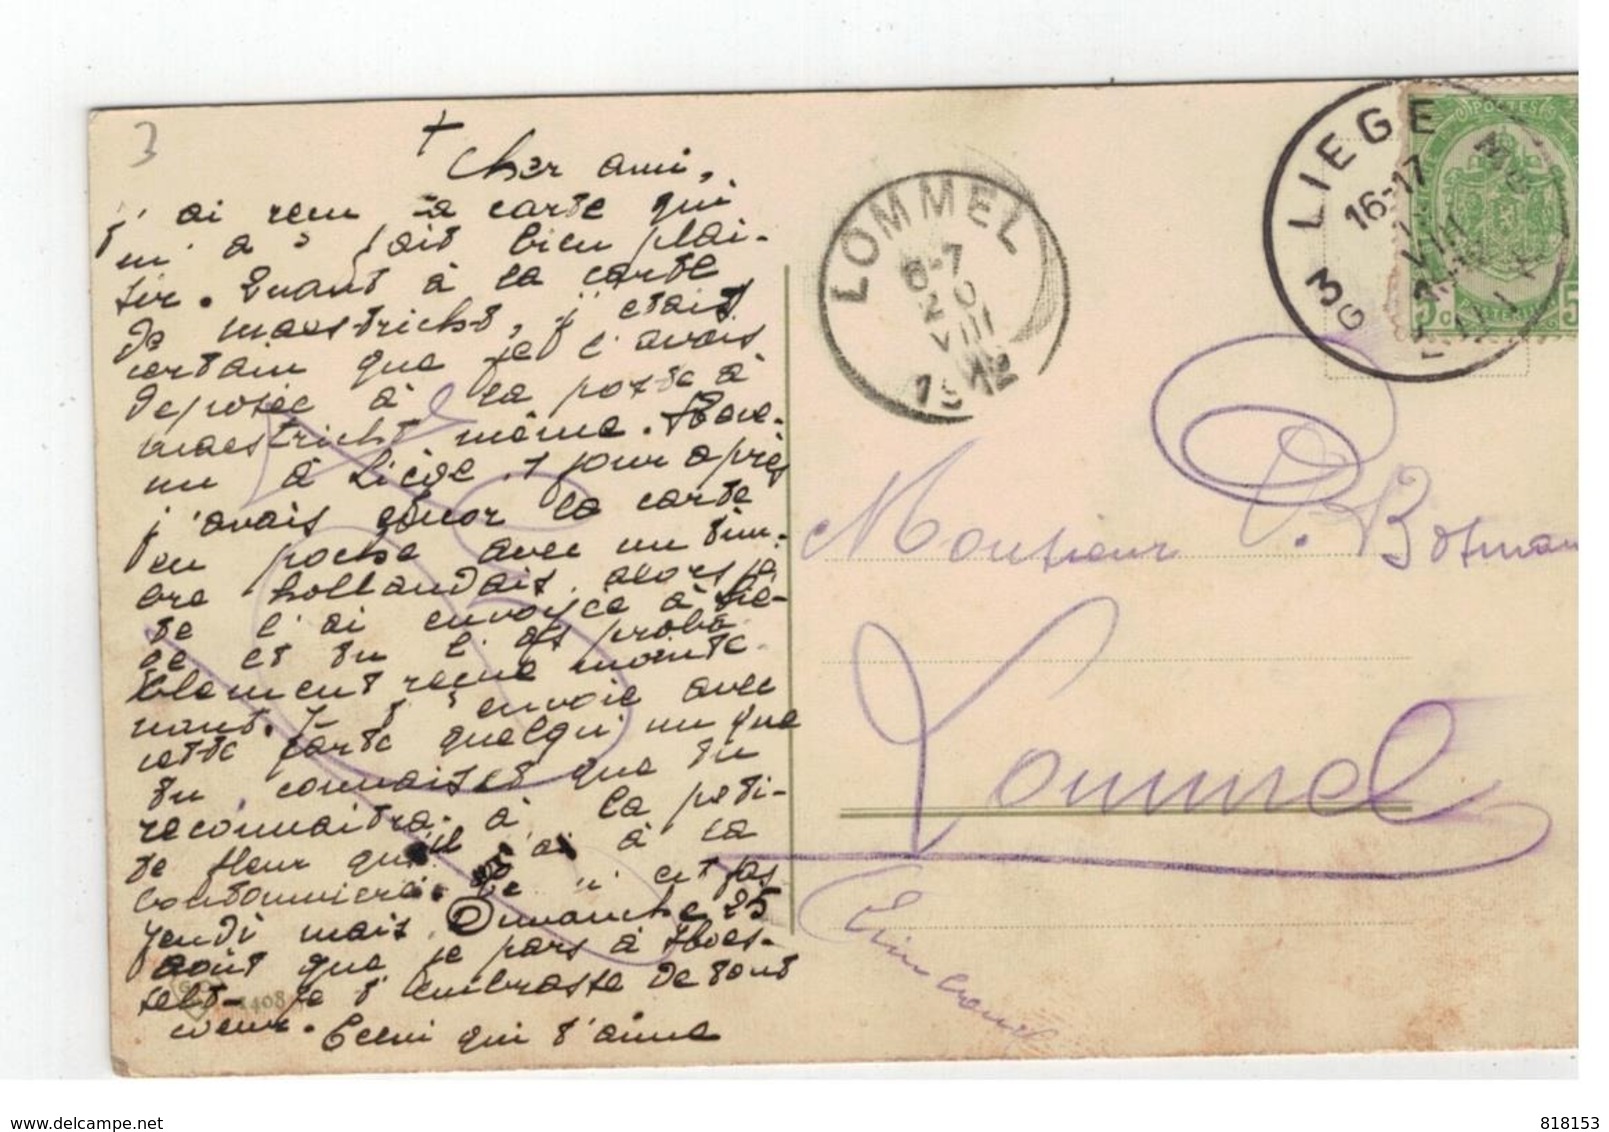 3
Cher ami,
j'ai reçu ta carte qui
m'a fait bien plai-
sir. Quant à la carte
de maestricht, j'étais
certain que je l'avais
deposée à la poste à
maestricht même. Reve-
nu à Liège, 1 jour après
j'avais encor la carte
en poche avec un tim-
bre hollandais, alors je
te l'ai envoyée à Liè-
ge et tu l'as proba-
blement reçue mainte-
nant. Je t'envoie avec
cette carte quelqu'un que
tu connais et que tu
reconnaitra à la peti-
te fleur qu'il a à la
boutonnière. Ce n'est pas
jeudi mais Dimanche 25
août que je pars à Hoes-
selt. Je t'embrasse de tout
coeur. Celui qui t'aime
1408
LOMMEL
6-7
20
VIII
1912
LIEGE
16-17
VIII
3
G
POSTES
5c
5
Monsieur V. Botman
Lommel
(Limbourg)
www.delcampe.net
818153